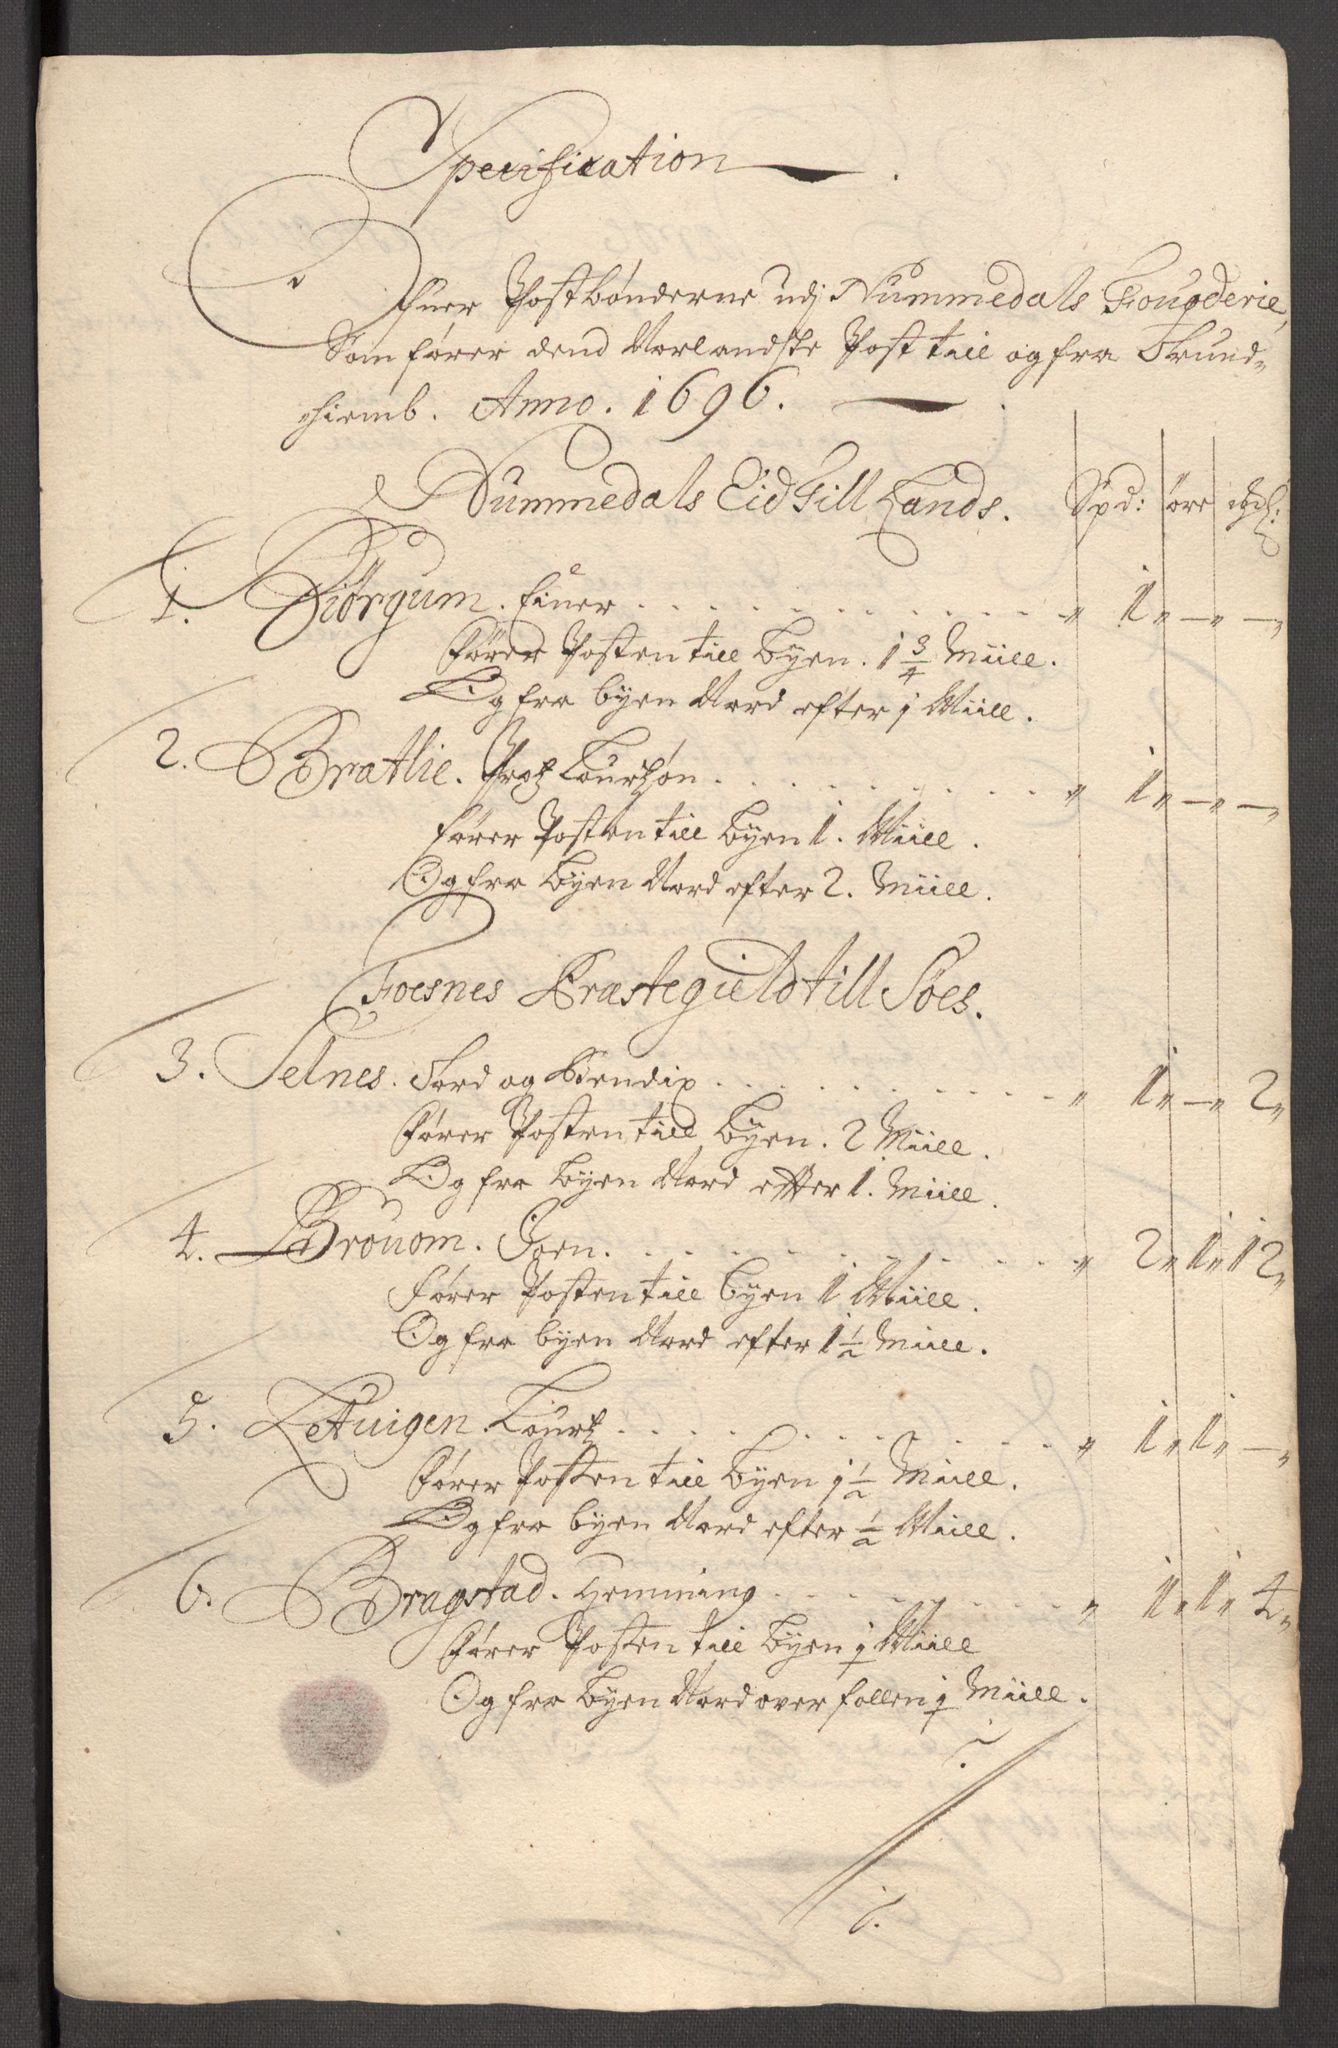 Specification
Ofuer Postbønderne udj Nummedals Fougderie,
Som fører dend Norlandske Post till og fra Trund-
hiemb. Anno. 1696.
Nummedals Eid Till Lands. Spd: ört
1. Biörgum. Einer . . . " 1 " — " — "
Fører Posten till Byen. 1 3/4 Miill.
Og fra byen Nord efter 1 Miill.
2. Bratlie. Lauritzøn . . . " 1 " — " — "
fører Posten till Byen 1. Miill.
Og fra Byen Nord efter 2. Miill.
Foesnes Præstegield till Söes.
3. Selnes. og Bendix . . . " 1 " — " 2 "
Fører Posten till Byen. 2 Miill.
Og fra Byen Nord efter 1. Miill.
4. Brouom. Joen. . . . " 2 " 1 " 12 "
fører Posten till byen 1 Miill.
Og fra byen Nord efter 1 1/2 Miill.
5. Zetuigen. Lauritz . . . " 1 " 1 " — "
Fører Posten till Byen 1 1/2 Miill.
Og fra byen Nord efter 1/2 Miill.
6. Bragstad. Hemming . . . " 1 " 1 " 4 "
Fører Posten till Byen 1 Miill
Og fra Byen Nord over follen 1 Miill.